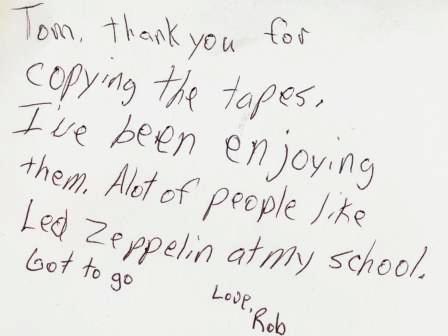 Tom, thank you for
copying the tapes.
I've been enjoying
them. Alot of people like
Led Zeppelin at my school.
Got to go
Love,
Rob